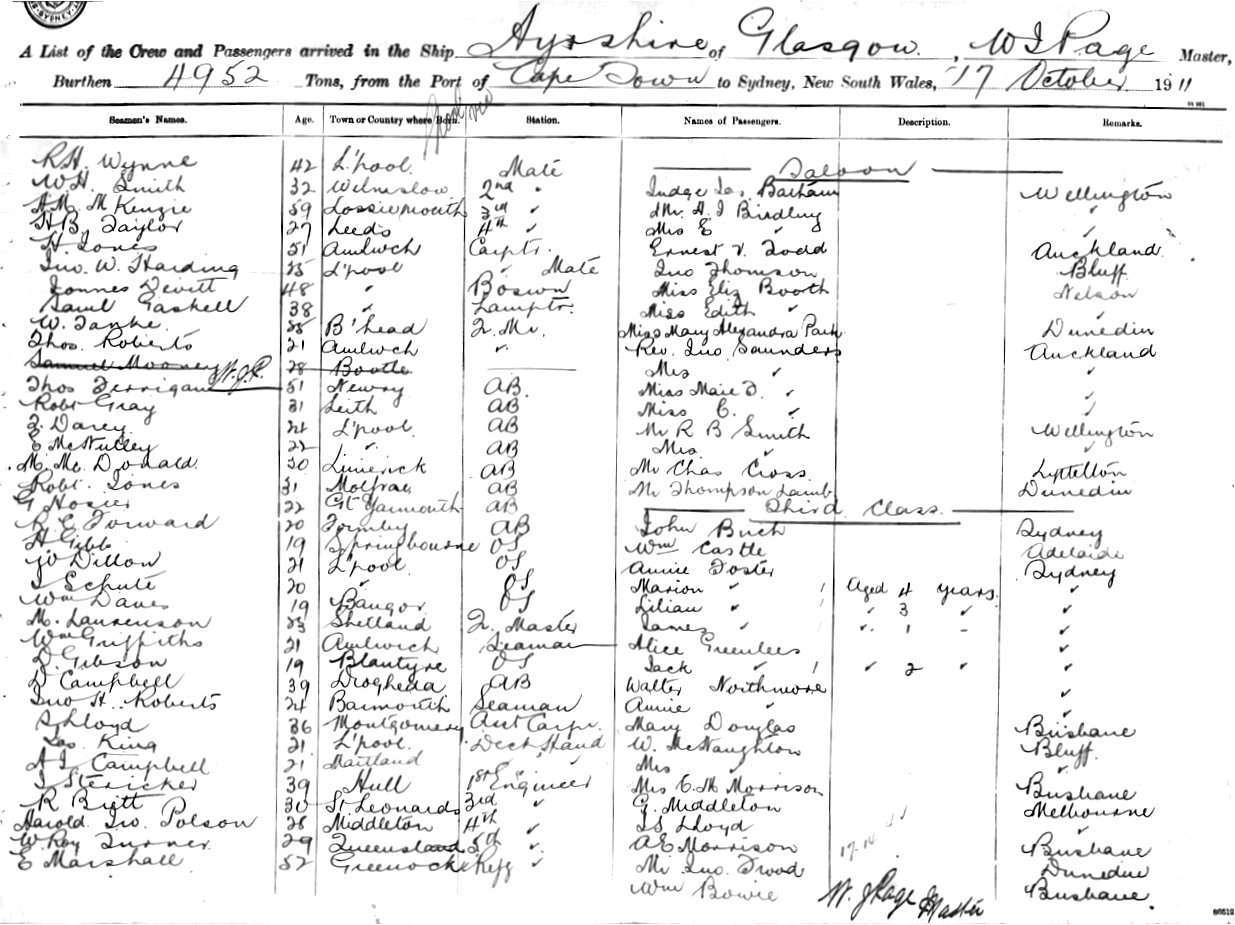 SYDNEY
A List of the Crew and Passengers arrived in the Ship Ayrshire of Glasgow, W J Page Master,
Burthen 4952 Tons, from the Port of Cape Town to Sydney, New South Wales, 17 October 1911
Seamen's Names. Age. Town or Country where Born. Station. Names of Passengers. Description. Remarks.
Saloon
R.H. Wynne 42 L'pool. Mate
W.H. Smith 32 Wilmslow 2nd " Judge Jas. Wellington
A.M. McKenzie 59 Lossiemouth 3rd " Mr. H. J Birdling "
H.B. Taylor 27 Leeds 4th " Mrs E " "
H Jones 51 Amlwch Carptr. Ernest V. Todd Auckland
Jno. W. Harding 25 L'pool " Mate Jno Thomson Bluff
Devitt 48 " Boswn Miss Eliz Booth Nelson
Saml Gaskell 38 " Lamptr. Miss Edith " "
W. 25 B'head Q. Mr. Miss Mary Alexandra Park Dunedin
Thos. Roberts 21 Amlwch " Rev. Jno. Saunders Auckland
Samuel Mooney W.J.P. 28 Bootle Mrs " "
Thos Ferrigan 51 Newry AB. Miss Marie D. " "
Robt Gray 31 Leith AB Miss C. " "
Darcy 24 L'pool AB Mr R B Smith Wellington
E McNulley 22 " AB Mrs " "
M. McDonald 30 Limerick AB Mr Chas Cross Lyttelton
Robt. Jones 31 AB Mr Thompson Lamb Dunedin
G Hosier 22 Gt Yarmouth AB Third Class
R. E. Forward 20 Formby AB John Buch Sydney
H Gibb 19 Springbourne OS Wm Castle Adelaide
W Dillon 21 L'pool OS Annie Foster Sydney
J Schute 20 " OS Marion " 1 Aged 4 years. "
Wm Daves 19 Bangor OS Lilian " 1 " 3 " "
M. Laurenson 23 Shetland Q. Master James " 1 " 1 " "
Wm Griffiths 21 Amlwich Seaman Alice Greenlees "
D. Gibson 19 Blantyre OS Jack " 1 " 2 " "
D Campbell 39 Drogheda AB Walter Northmore "
Jno H. Roberts 24 Barmouth Seaman Annie " "
Lloyd 36 Montgomery Ast Carpr. Mary Douglas Brisbane
Jas. King 21 L'pool. Deck Hand W. McNaughton Bluff
A J Campbell 21 Maitland " " Mrs " "
J Stericker 39 Hull 1st Engineer Mrs C. M Morrison Brisbane
R Britt 30 St Leonards 3rd " G. Middleton Melbourne
Harold Jno. Polson 28 Middleton 4th " J S Lloyd "
W. Roy Turner 29 Queensland 5th " A E Morrison Brisbane
E Marshall 52 Greenock Refg " Mr Jno. Dunedin
Wm Bowie Brisbane
17.10.11
W. J Page Master